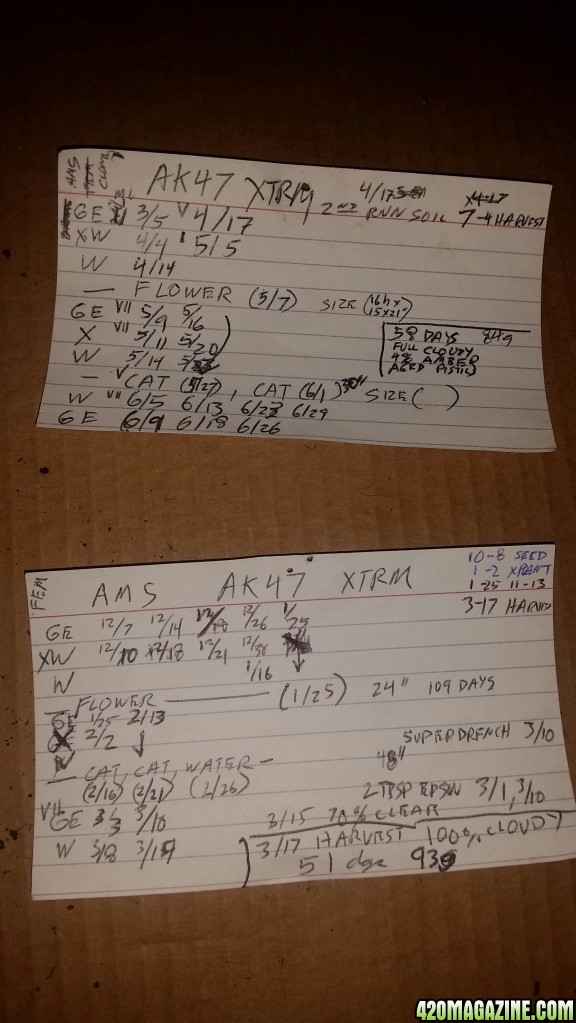 AMS
AK47 XTRM 4/17
2ND RUN SOIL 7-4 HARVEST
GE 3/5 V 4/17
XW 4/4 5/5
W 4/14
— FLOWER (5/7) SIZE (16h x 15x21")
GE VII 5/9 5/16
X VII 5/11 5/20
W 5/14
58 DAYS 84g
FULL CLOUDY
AMBER
— CAT (5/27), CAT (6/1) SIZE ( )
W VII 6/5 6/13 6/22 6/29
GE 6/9 6/18 6/26
FEM
AMS AK47 XTRM
10-8 SEED
1-2 XPLANT
1-25 11-13
3-17 HARVEST
GE 12/7 12/14 12/26 1/25
XW 12/10 12/18 12/21 12/30
W 1/16
— FLOWER — (1/25) 24" 109 DAYS
GE 1/25 2/13
2/2
SUPERDRENCH 3/10
48"
— CAT, CAT, WATER —
(2/16) (2/21) (2/26)
2 TBSP EPSOM 3/1, 3/10
VII GE 3/3 3/10
3/15 70% CLEAR
W 3/8 3/15
3/17 HARVEST 100% CLOUDY
51 dys 93g
420MAGAZINE.COM